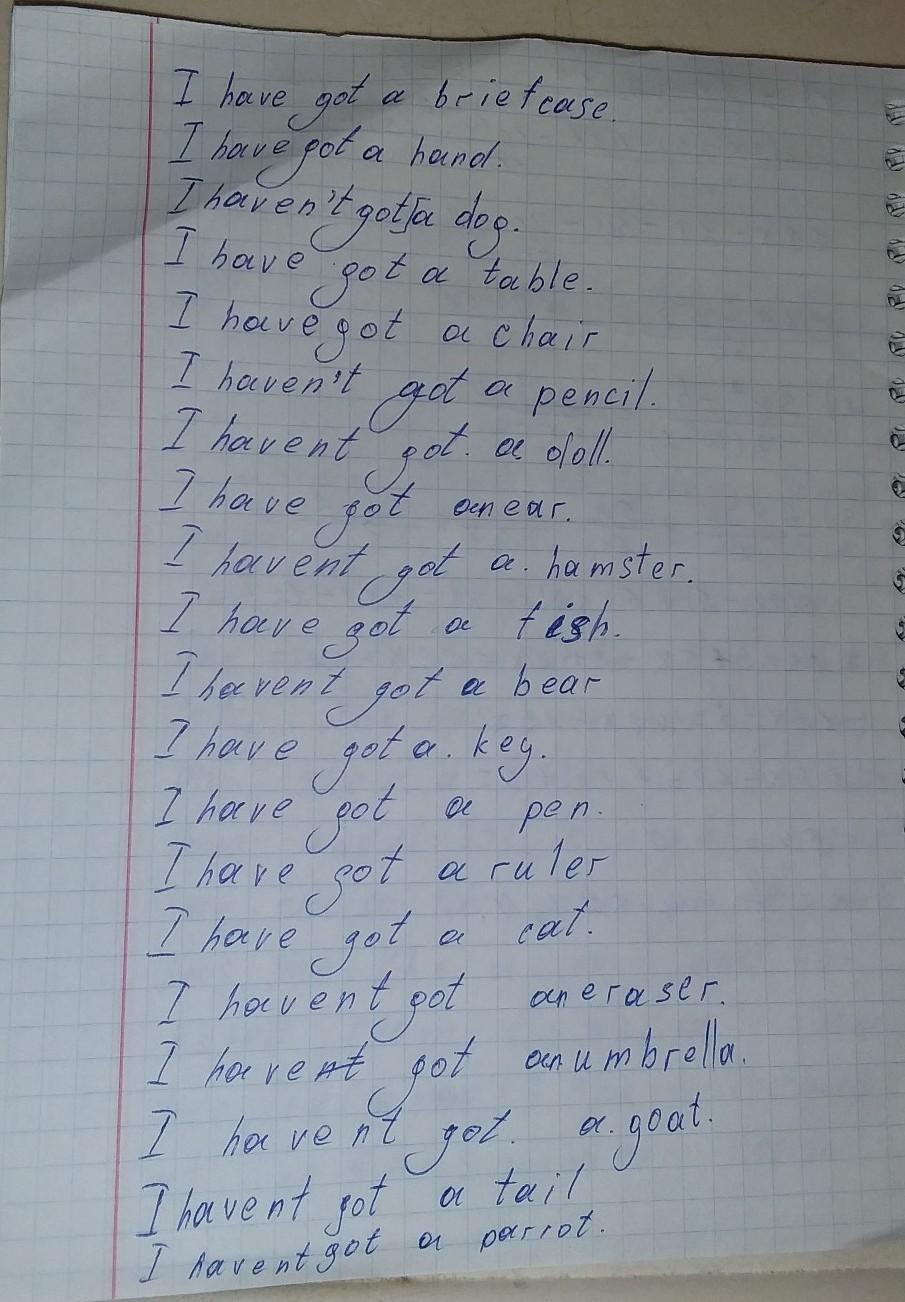 I have got a briefcase.
I have got a hand.
I haven't got a dog.
I have got a table.
I have got a chair
I haven't got a pencil.
I havent got. a doll.
I have got anear.
I havent got a. hamster.
I have got a fish.
I havent got a bear
I have got a. key.
I have got a pen.
I have got a ruler
I have got a cat.
I havent got aneraser.
I havent got anumbrella.
I havent got. a. goat.
I havent got a tail
I havent got a parrot.